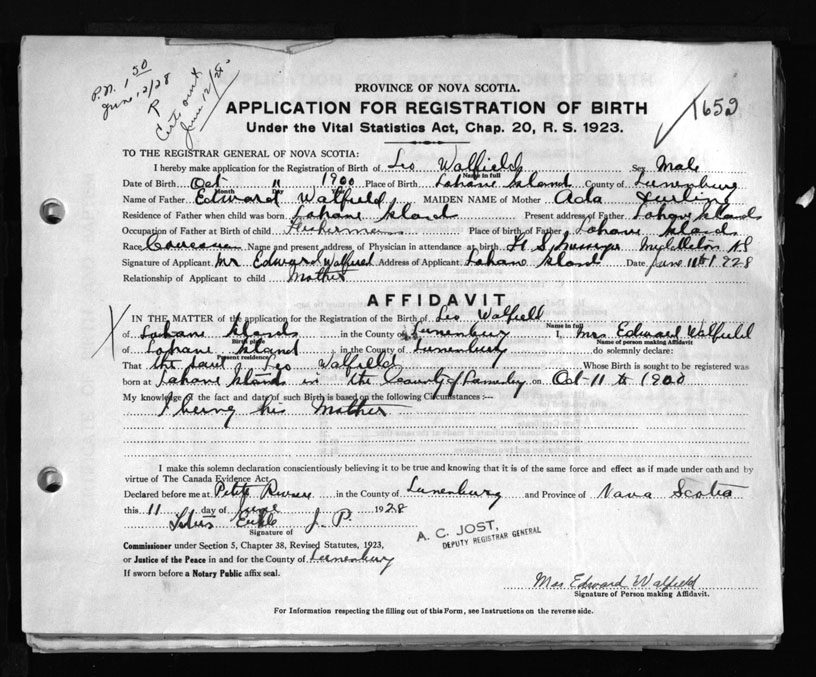 P.N. 1 50
June 12/28
R
June 12/28
1652
PROVINCE OF NOVA SCOTIA.
APPLICATION FOR REGISTRATION OF BIRTH
Under the Vital Statistics Act, Chap. 20, R. S. 1923.
TO THE REGISTRAR GENERAL OF NOVA SCOTIA:
I hereby make application for the Registration of Birth of Leo Walfield Sex Male
Name in full
Date of Birth Oct 11 1900 Place of Birth Lahave Island County of Lunenburg
Month Day Year
Name of Father Edward Walfield MAIDEN NAME of Mother Ada
Residence of Father when child was born Lahave Island Present address of Father Lahave Islands
Occupation of Father at Birth of child Fisherman Place of birth of Father Lahave Islands
Race Name and present address of Physician in attendance at birth H S Middleton NS
Signature of Applicant Mr Edward Walfield Address of Applicant Lahave Island Date June 11th 1928
Relationship of Applicant to child Mother
AFFIDAVIT
IN THE MATTER of the application for the Registration of the Birth of Leo Walfield
Name in full
of Lahave Islands in the County of Lunenburg I, Mrs Edward Walfield
Birth place Name of person making Affidavit
of Lahave Island in the County of Lunenburg do solemnly declare:
Present residence
That the said Leo Walfield Whose Birth is sought to be registered was
born at Lahave Islands in the County of on Oct 11 th 1900
My knowledge of the fact and date of such Birth is based on the following Circumstances:—
I being his Mother
I make this solemn declaration conscientiously believing it to be true and knowing that it is of the same force and effect as if made under oath and by
virtue of The Canada Evidence Act.
Declared before me at Petite Riviere in the County of Lunenburg and Province of Nova Scotia
this 11 day of June 1928
J. P.
Signature of
A. C. JOST,
DEPUTY REGISTRAR GENERAL
Commissioner under Section 5, Chapter 38, Revised Statutes, 1923,
or Justice of the Peace in and for the County of Lunenburg
If sworn before a Notary Public affix seal.
Mrs Edward Walfield
Signature of Person making Affidavit.
For Information respecting the filling out of this Form, see Instructions on the reverse side.